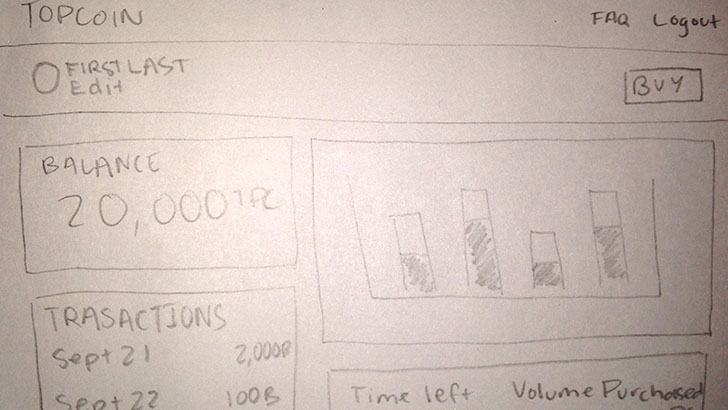 TOPCOIN
FAQ Logout
FIRST LAST
Edit
BUY
BALANCE
20,000 TPC
TRASACTIONS
Sept 21 2,000B
Sept 22 100B
Time left Volume Purchased